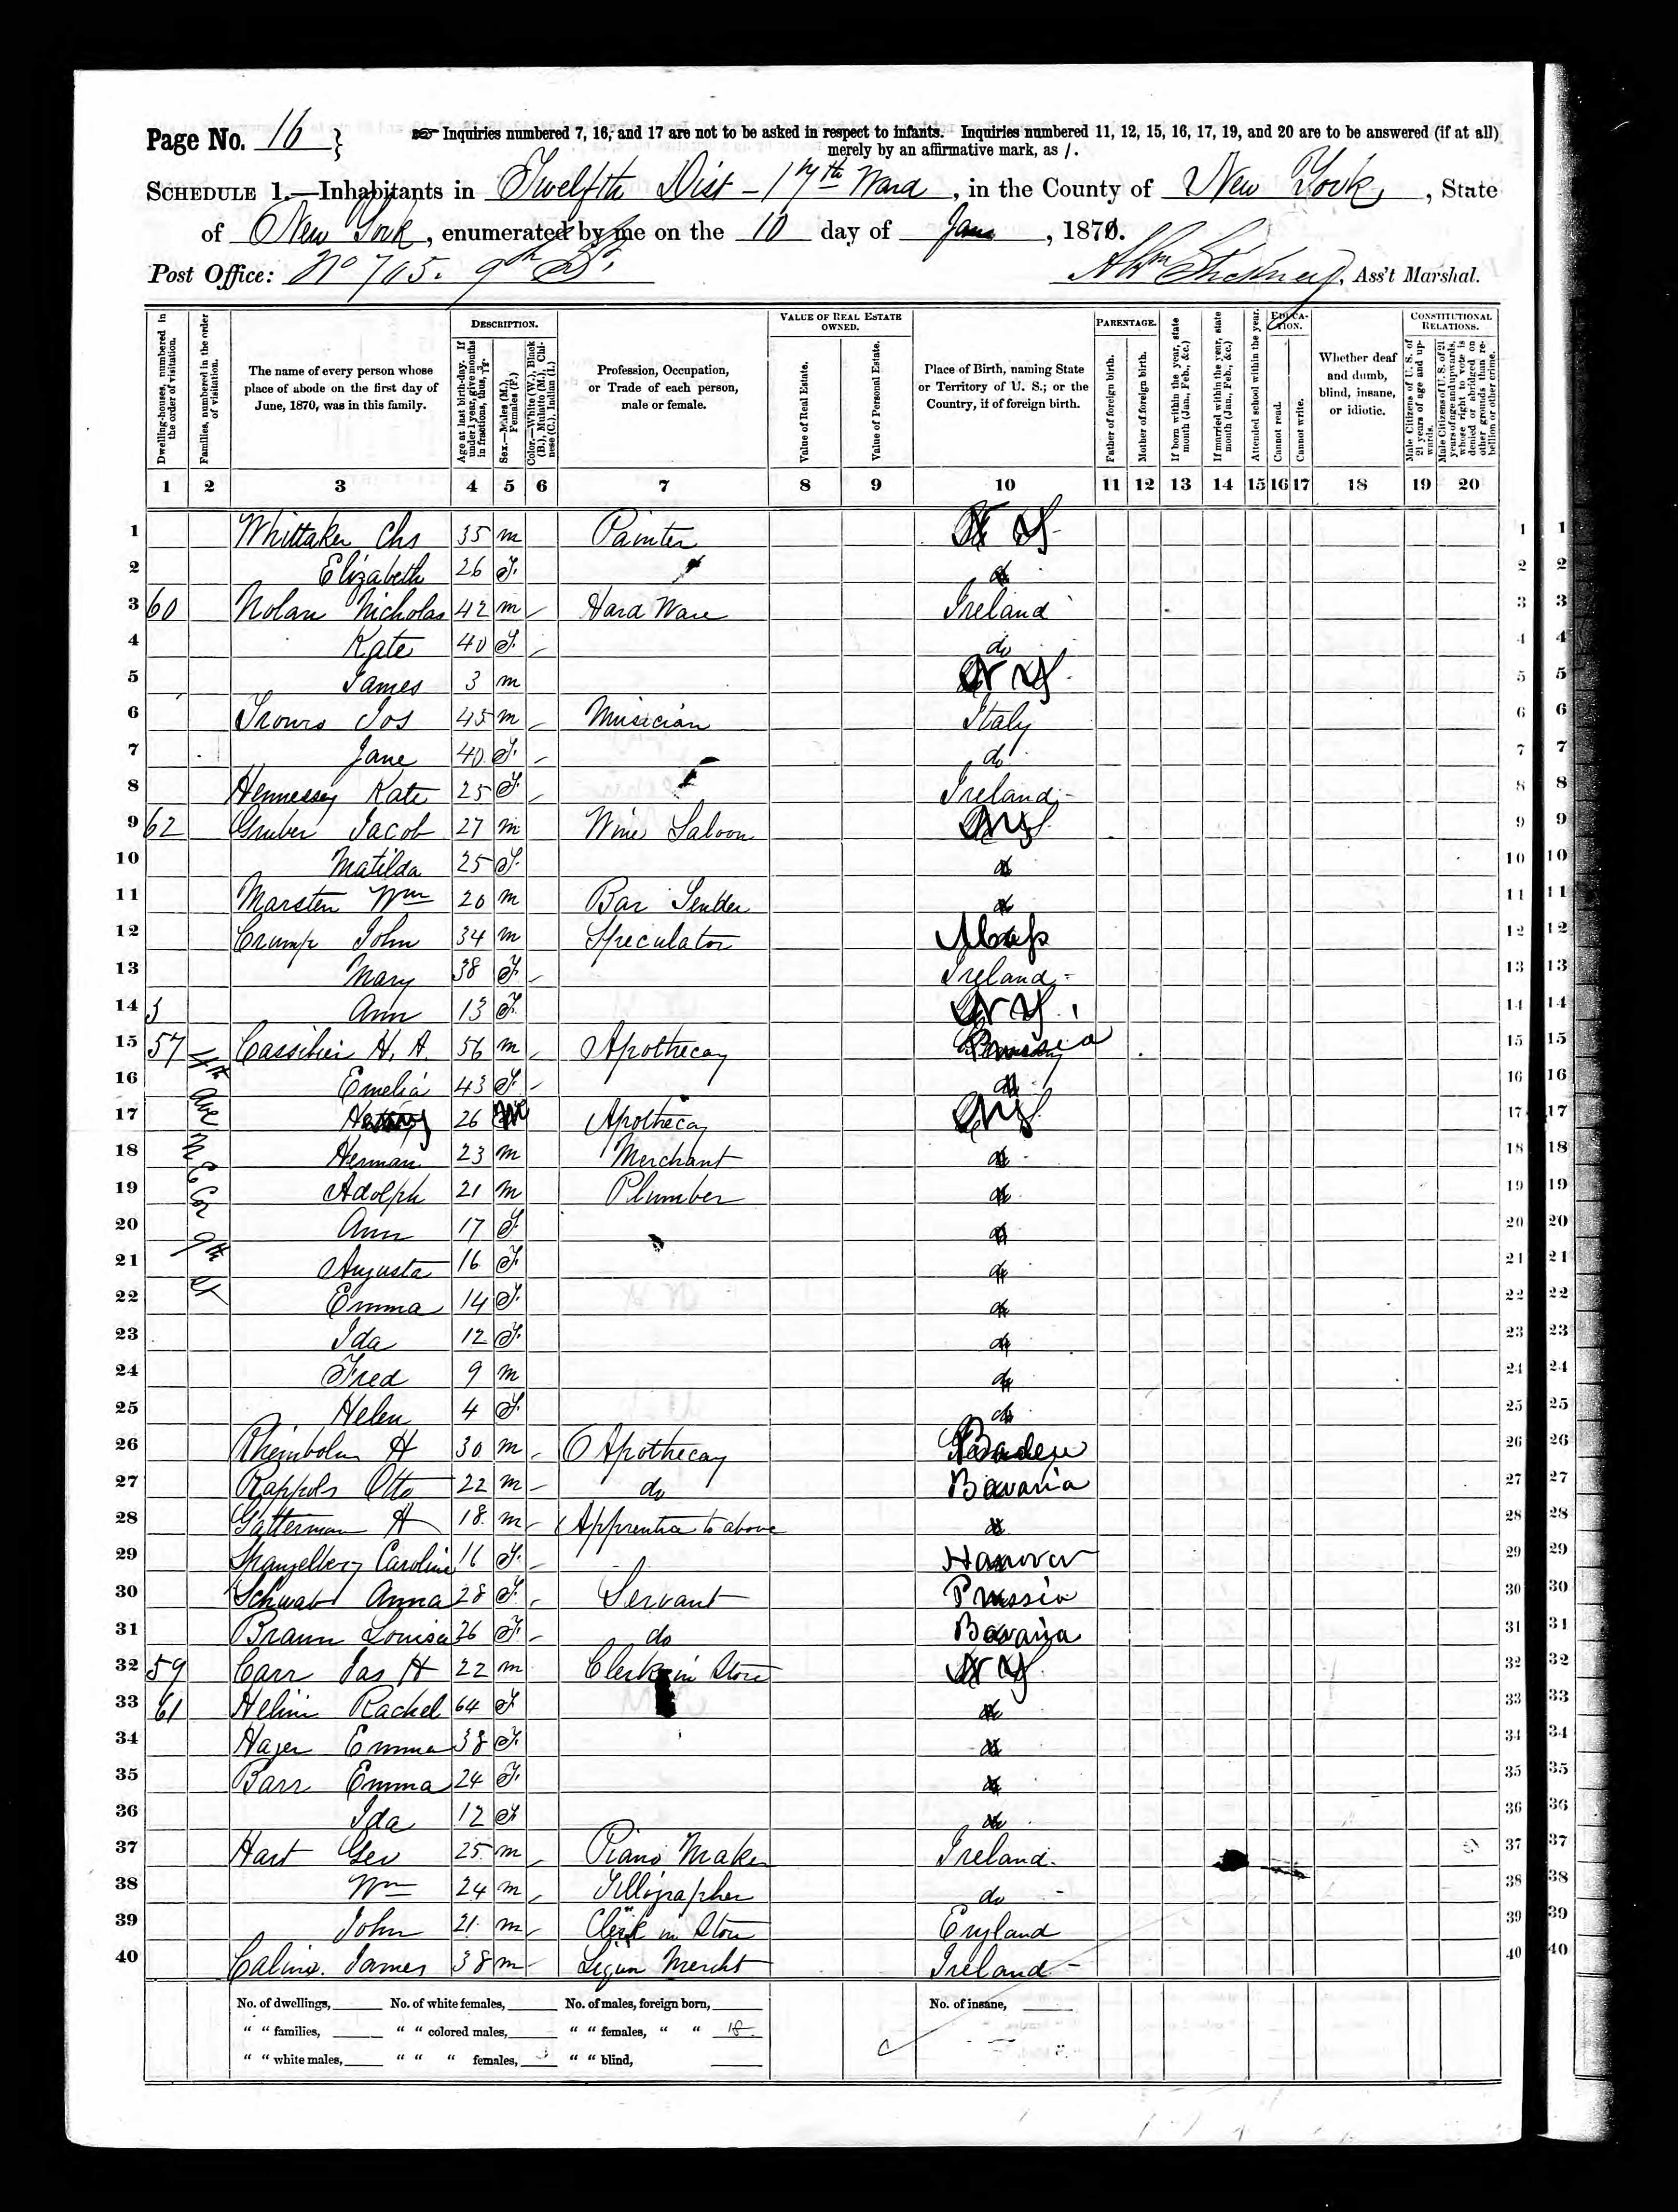 Page No. 16 } Inquiries numbered 7, 16, and 17 are not to be asked in respect to infants. Inquiries numbered 11, 12, 15, 16, 17, 19, and 20 are to be answered (if at all)
merely by an affirmative mark, as /.
SCHEDULE 1.—Inhabitants in Twelfth Dist - 17th Ward, in the County of New York, State
of New York, enumerated by me on the 10 day of Jan, 1871.
Post Office: No 705. 9th St. Ass't Marshal.
Dwelling-houses, numbered in the order of visitation.
Families, numbered in the order of visitation.
The name of every person whose place of abode on the first day of June, 1870, was in this family.
DESCRIPTION.
Age at last birth-day. If under 1 year, give months in fractions, thus, 3/12.
Sex.—Males (M.), Females (F.)
Color.—White (W.), Black (B.), Mulatto (M.), Chinese (C.), Indian (I.)
Profession, Occupation, or Trade of each person, male or female.
VALUE OF REAL ESTATE OWNED.
Value of Real Estate.
Value of Personal Estate.
Place of Birth, naming State or Territory of U. S.; or the Country, if of foreign birth.
PARENTAGE.
Father of foreign birth.
Mother of foreign birth.
If born within the year, state month (Jan., Feb., &c.)
If married within the year, state month (Jan., Feb., &c.)
Attended school within the year.
EDUCATION.
Cannot read.
Cannot write.
Whether deaf and dumb, blind, insane, or idiotic.
CONSTITUTIONAL RELATIONS.
Male Citizens of U. S. of 21 years of age and upwards.
Male Citizens of U. S. of 21 years of age and upwards, whose right to vote is denied or abridged on other grounds than rebellion or other crime.
1 2 3 4 5 6 7 8 9 10 11 12 13 14 15 16 17 18 19 20
1 Whittaker Chs 35 m Painter N Y 1 1
2 Elizabeth 26 F. do 2 2
3 60 Nolan Nicholas 42 m Hard Ware Ireland 3 3
4 Kate 40 F. do 4 4
5 James 3 m N Y. 5 5
6 Jos 45 m Musician Italy 6 6
7 Jane 40 F. do 7 7
8 Hennessey Kate 25 F. Ireland 8 8
9 62 Gruber Jacob 27 m Wine Saloon N Y. 9 9
10 Matilda 25 F. do 10 10
11 Marsten Wm 20 m Bar Tender do 11 11
12 Crump John 34 m Speculator Mass 12 12
13 Mary 38 F. Ireland 13 13
14 3 Ann 13 F. N Y. 14 14
15 57 H. A. 56 m Apothecay Prussia 15 15
16 Emelia 43 F. do 16 16
17 26 M Apothecay N Y. 17 17
18 Herman 23 m Merchant do 18 18
19 Adolph 21 m Plumber do 19 19
20 Ann 17 F. do 20 20
21 Augusta 16 F. do 21 21
22 Emma 14 F. do 22 22
23 Ida 12 F. do 23 23
24 Fred 9 m do 24 24
25 Helen 4 F. do 25 25
4th Ave N E Cor 9th St
26 H 30 m Apothecay Baden 26 26
27 Otto 22 m do Bavaria 27 27
28 Gatterman H 18 m Apprentice to above do 28 28
29 Spangelberg Caroline 16 F. Hanover 29 29
30 Schwab Anna 28 F. Servant Prussia 30 30
31 Braun Louisa 26 F. do Bavaria 31 31
32 59 Carr Jas H 22 m Clerk in Store N Y. 32 32
33 61 Rachel 64 F do 33 33
34 Hager Emma 38 F. do 34 34
35 Barr Emma 24 F. do 35 35
36 Ida 12 F do 36 36
37 Hart Geo 25 m Piano Maker Ireland 37 37
38 Wm 24 m Tillographer do 38 38
39 John 21 m Clerk in Store England 39 39
40 James 38 m Segar Mercht Ireland 40 40
No. of dwellings, No. of white females, No. of males, foreign born, No. of insane,
" " families, " " colored males, " " females, " " 18
" " white males, " " " females, " " blind,